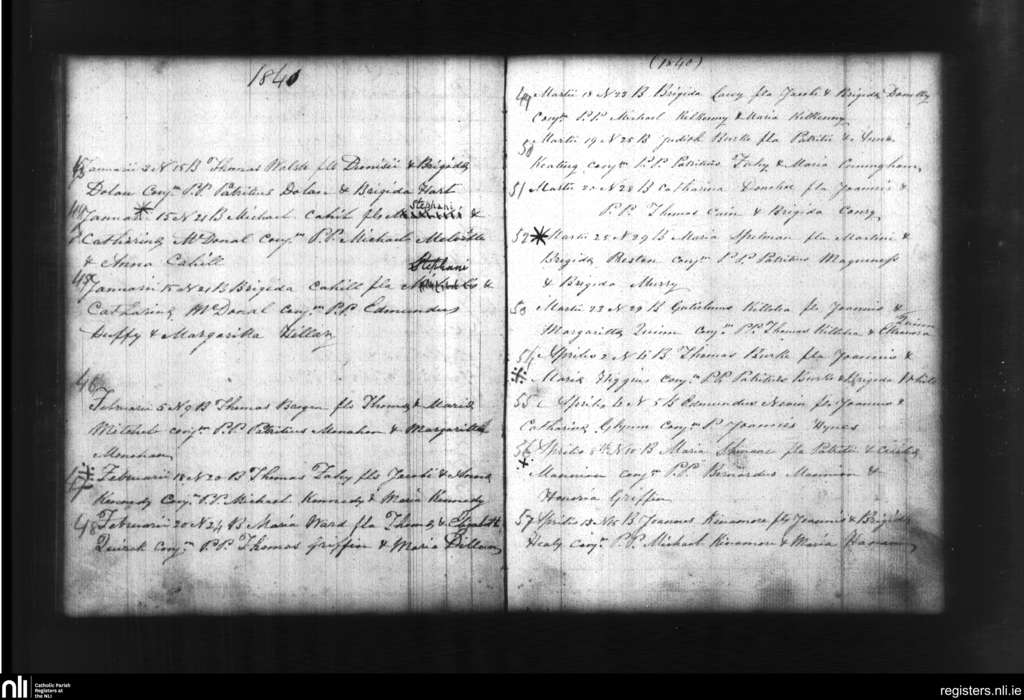 1840
43 Januarii 3 N 15 B Thomas Walsh fls Dionisii & Brigida
Dolan Conj.m P.P. Patritius Dolan & Brigida Hart
44 Januarii 15 N 21 B Michael Cahill fls Stephani &
Catharina McDonal conj.m P.P. Michael Melville
& Anna Cahill
45 Januarii 15 N 21 B Brigida Cahill fla Stephani &
Catharina McDonal conj.m P.P. Edmundus
Huffy & Margaritta Dillan
46
Februarii 5 N 9 B Thomas Bergen fls Thoma & Maria
Mitchel conj.m P.P. Patritius Monahan & Margaritta
Monahan
47 Februarii 18 N 20 B Thomas Fahy fls Jacobi & Anna
Kennedy conj.m P.P. Michael Kennedy & Maria Kennedy
48 Februarii 20 N 24 B Maria Ward fla Thoma & Elizabeth
Quirck conj.m P.P. Thomas Griffin & Maria Dillan
(1840)
49 Martii 18 N 22 B Brigida fla Jacobi & Brigida
Conj.m P.P. Michael Kilkenny & Maria Kilkenny
50 Martii 19 N 25 B Judith Burke fla Patritii & Anna
Keating conj.m P.P. Patritius Fahy & Maria Cuningham
51 Martii 20 N 28 B Catharina fla Joannis &
P.P. Thomas Cain & Brigida Conry
52 Martii 25 N 29 B Maria Spelman fla Martini &
Brigida conj.m P.P. Patritius
& Brigida Murry
53 Martii 23 N 29 B Gulielmus Killelea fls Joannis &
Margaritta Quinn conj.m P.P. Thomas Killelea & Honoria
Quinn
54 Aprilis 2 N 15 B Thomas Burke fls Joannis &
Maria Higgins conj.m P.P. Patritius Burke & Brigida White
55 Aprilis N 5 B Edmundus fls Joannis &
Catharina Glynn conj.m P Joannis Hynes
56 Aprilis N 10 B Maria fla Patritii & Cecilia
Mannion conj.m P.P. Bernardus Mannion &
Honoria Griffin
57 Aprilis 13 N 15 B Joannes Kinamore fls Joannis & Brigida
Healy conj.m P.P. Michael Kinamore & Maria
nli
Catholic Parish
Registers at
the NLI
registers.nli.ie